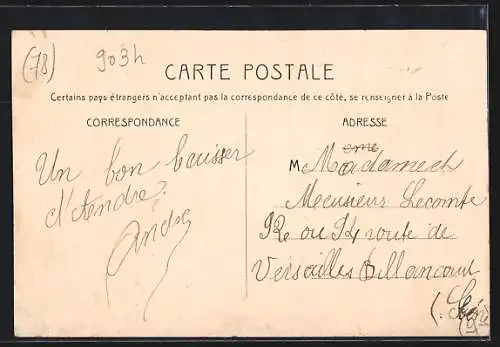 (78)
903h
CARTE POSTALE
Certains pays étrangers n'acceptant pas la correspondance de ce côté, se renseigner à la Poste
CORRESPONDANCE
Un bon baisser
d'Andre.
Andre
ADRESSE
eme
M Madame et
Meusieur Lecomte
92 ou 94 route de
Versailles Billancourt
(Seine)